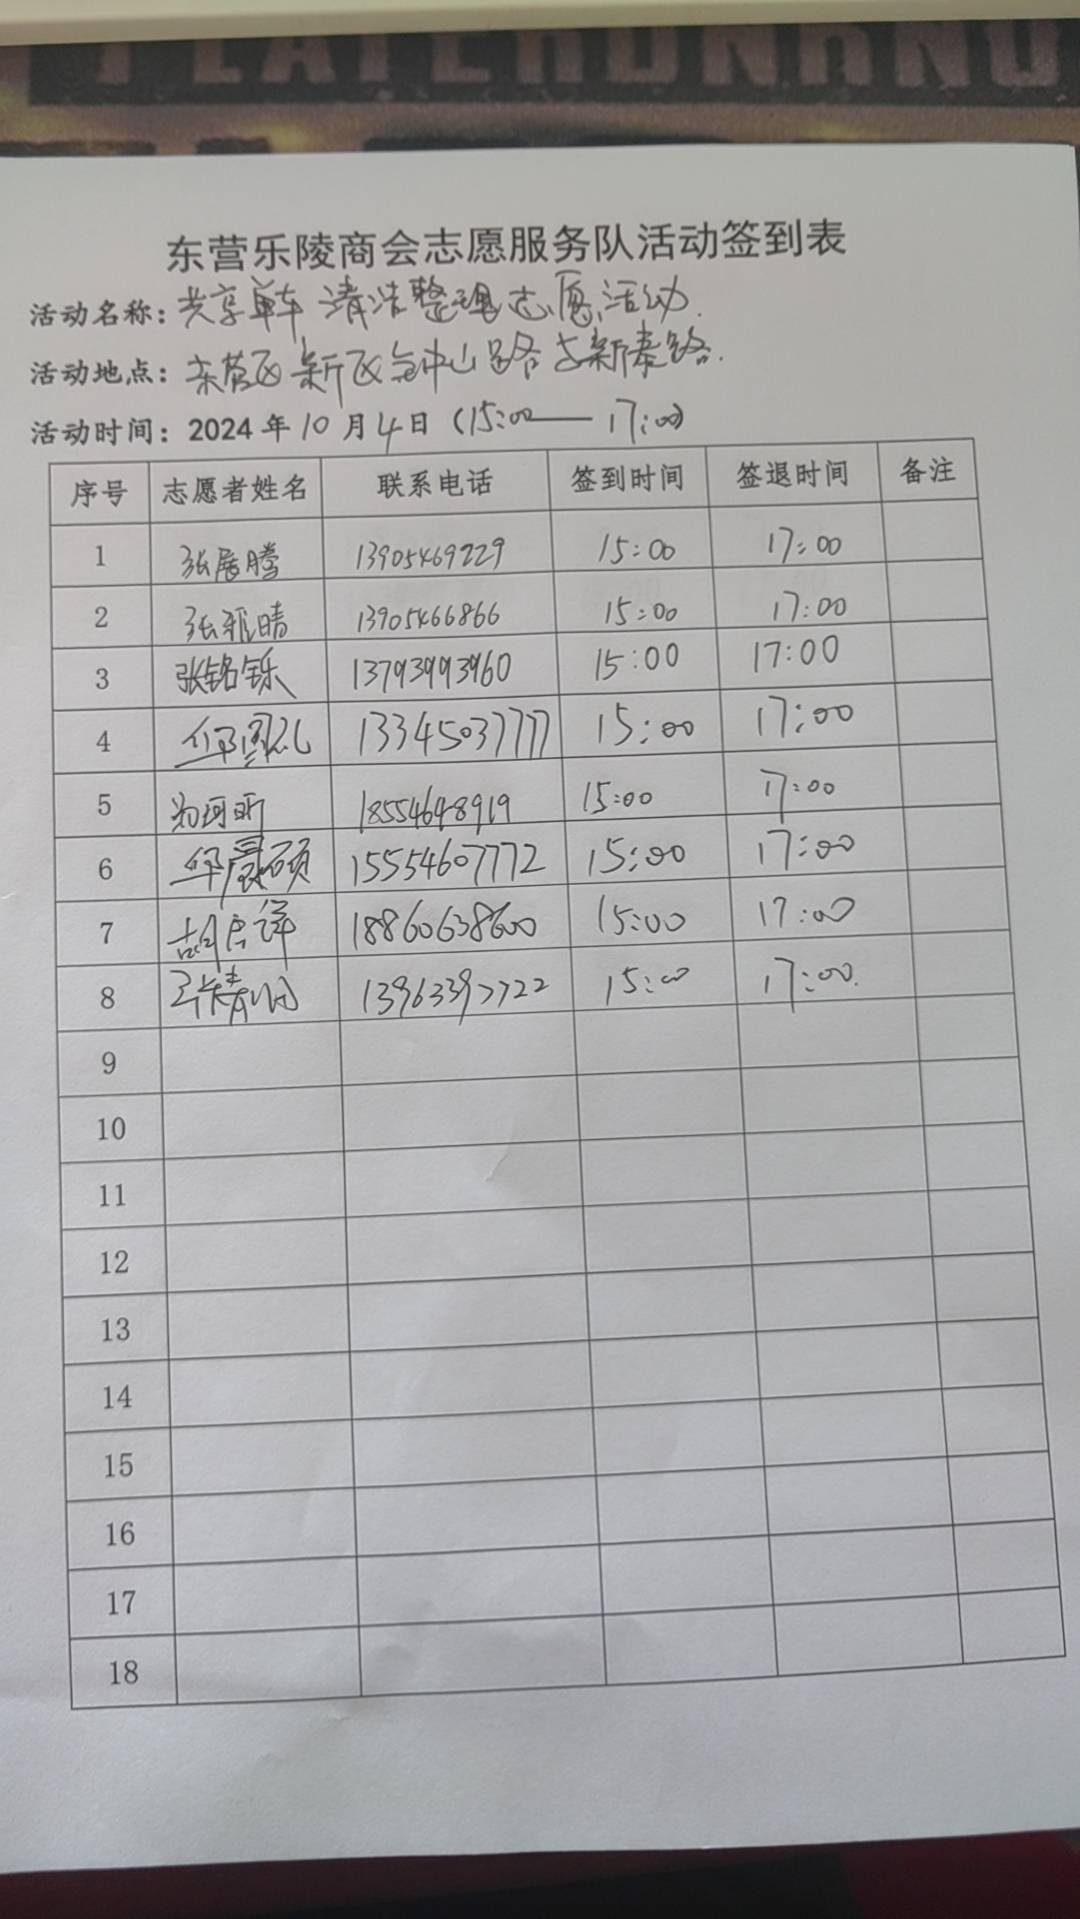 东营乐陵商会志愿服务队活动签到表
活动名称：共享单车清洁整理志愿活动.
活动地点：东营区新区钟山路与新泰路.
活动时间：2024年10月4日（15:00——17:00）
序号 志愿者姓名 联系电话 签到时间 签退时间 备注
1 张展腾 13905469229 15:00 17:00
2 张雅晴 13905466866 15:00 17:00
3 张铭铄 13793993960 15:00 17:00
4 13345037777 15:00 17:00
5 珂昕 18554648919 15:00 17:00
6 华晨硕 15554607772 15:00 17:00
7 胡 祥 18860638600 15:00 17:00
8 13963397722 15:00 17:00.
9
10
11
12
13
14
15
16
17
18